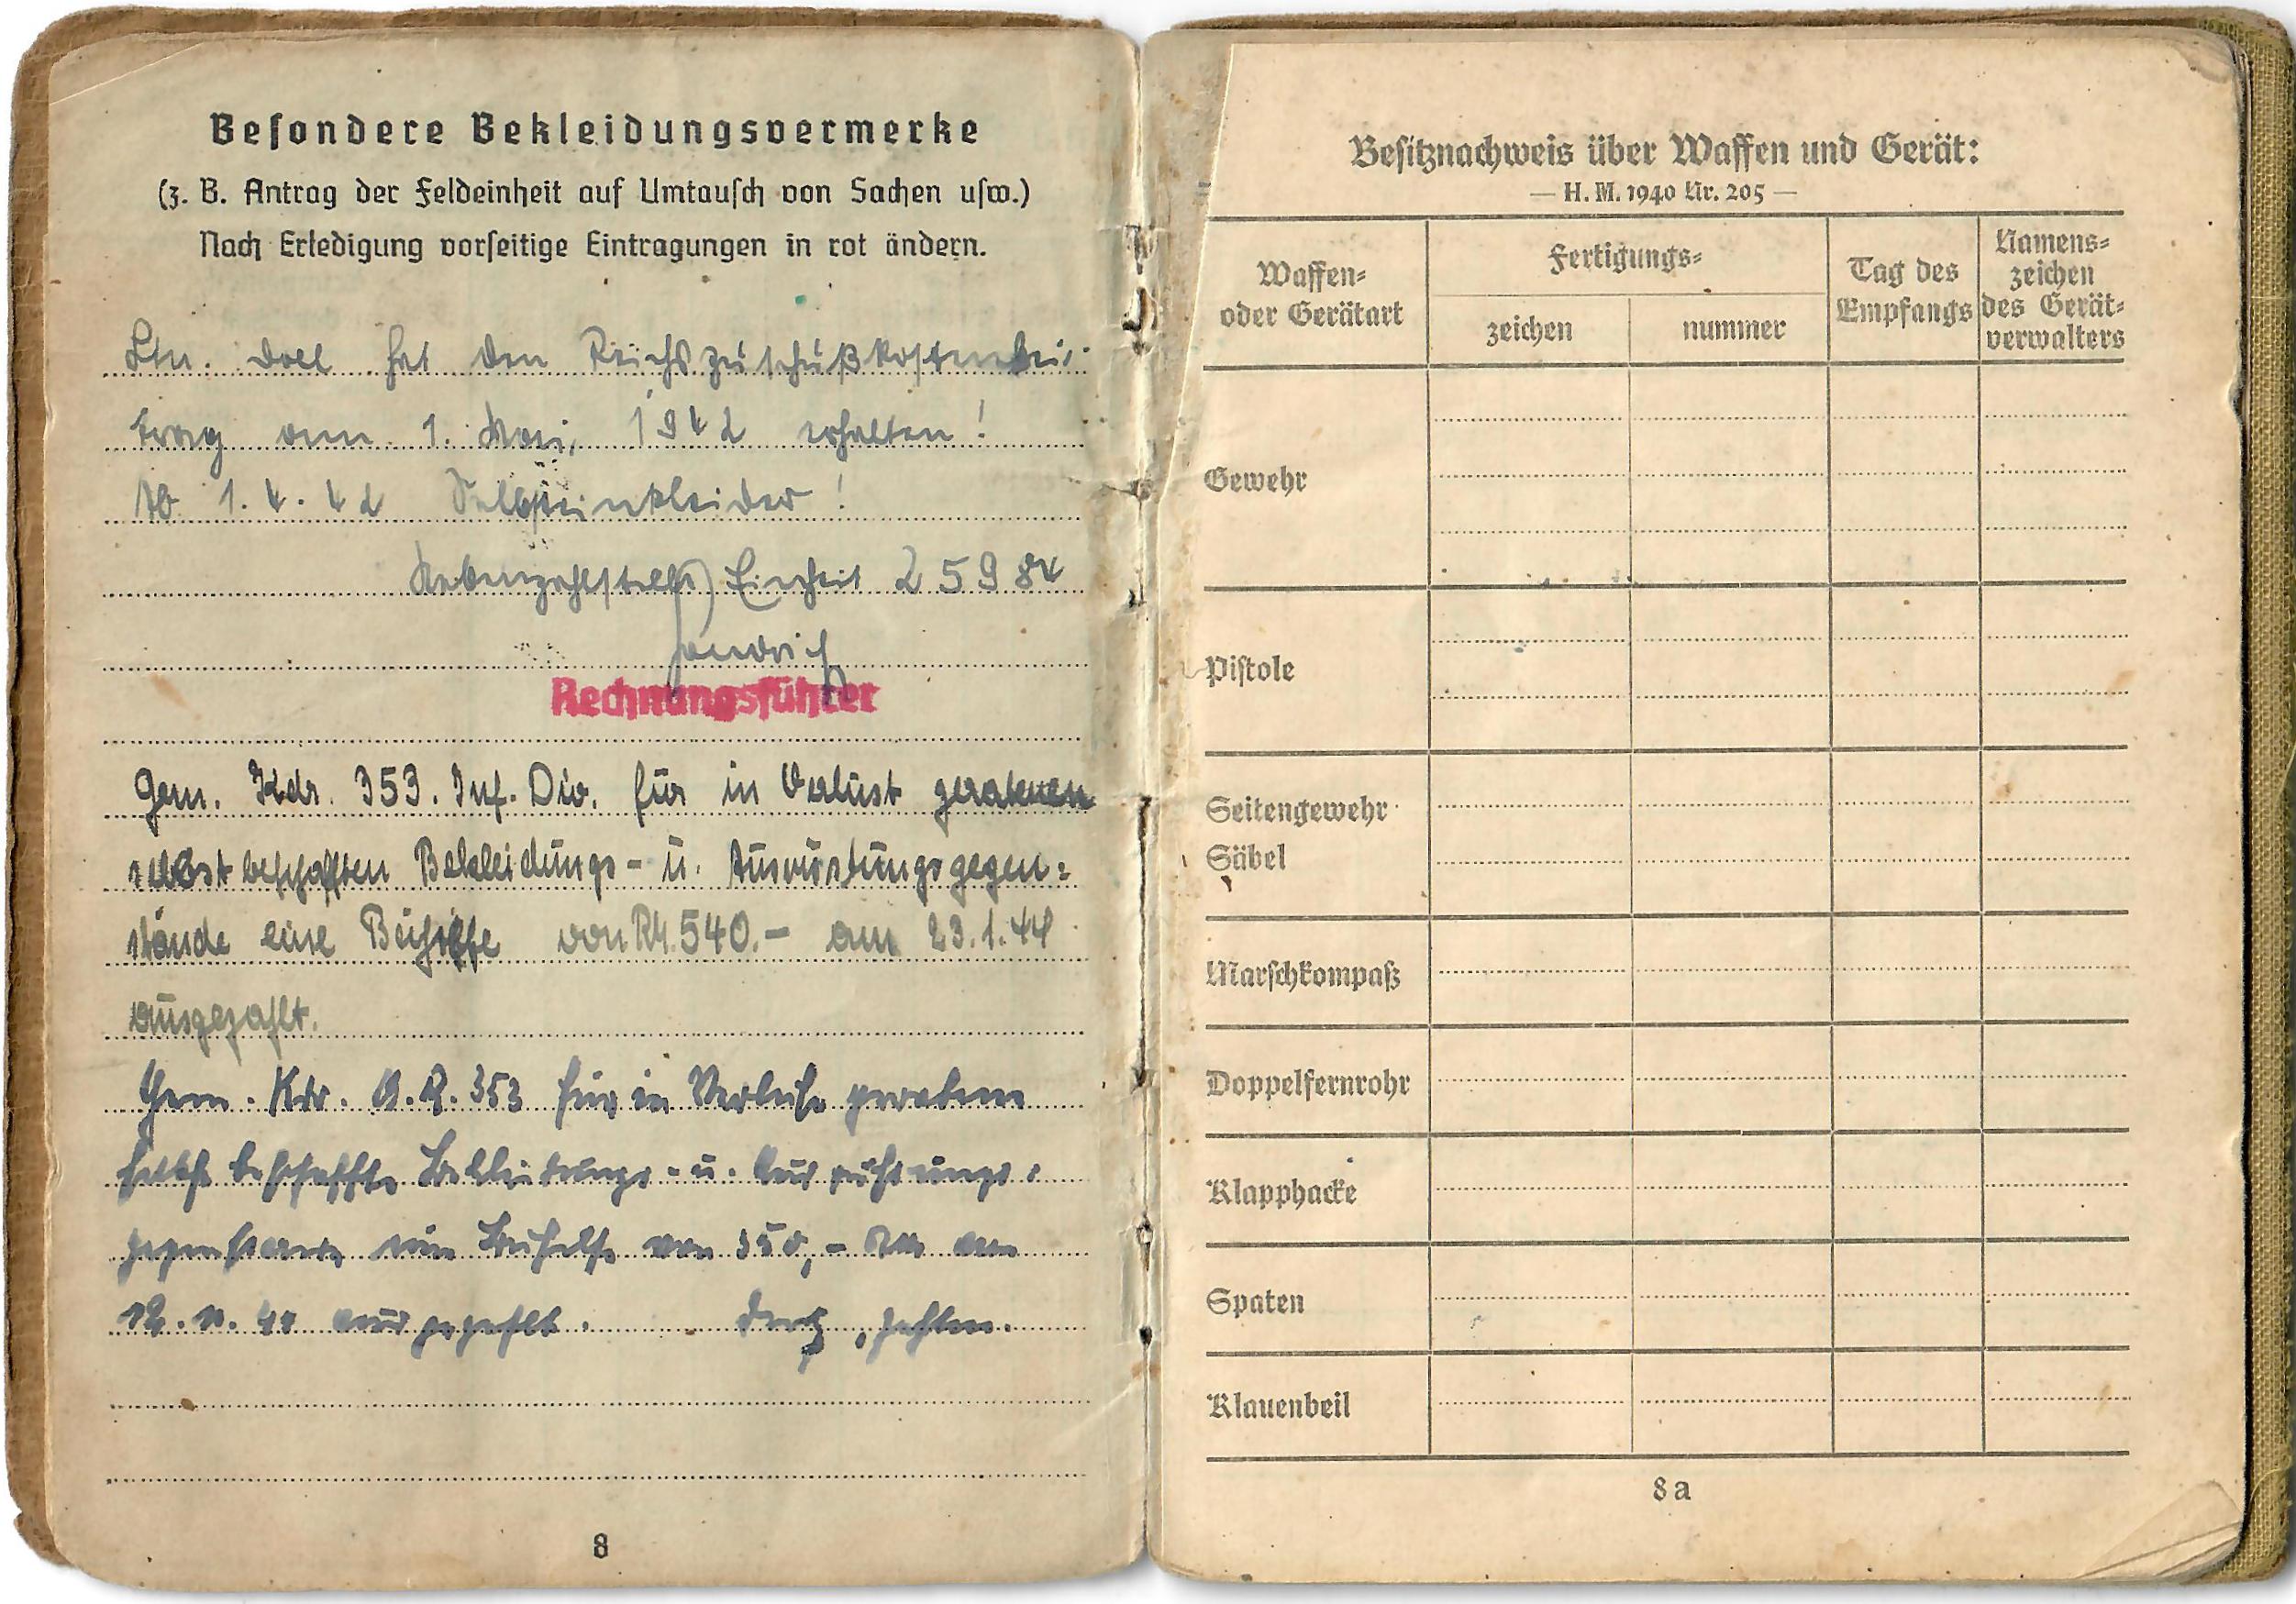 Besondere Bekleidungsvermerke
(z. B. Antrag der Feldeinheit auf Umtausch von Sachen usw.)
Nach Erledigung vorseitige Eintragungen in rot ändern.
Ltn. Doll hat den Reichszuschußkostenbei-
trag am 1. Mai 1942 erhalten!
Ab 1.4.42 Selbsteinkleider!
Nebenzahlstelle Einheit 25984
Rechnungsführer
Gem. Kdr. 353. Inf. Div. für in Verlust geratenen
selbst beschafften Bekleidungs- u. Ausrüstungsgegen=
stände eine Beihilfe von RM. 540.- am 23.1.44
ausgezahlt.
Gem. Kdr. A.R. 353 für in Verlust geratene
selbst beschaffte Bekleidungs- u. Ausrüstungs-
gegenstände eine Beihilfe von 350,- RM am
12.11.44 ausgezahlt.
8
Besitznachweis über Waffen und Gerät:
— H. M. 1940 Nr. 205 —
Waffen- oder Gerätart
Fertigungs-
zeichen
nummer
Tag des Empfangs
Namens-zeichen des Gerät-verwalters
Gewehr
Pistole
Seitengewehr
Säbel
Marschkompaß
Doppelfernrohr
Klapphacke
Spaten
Klauenbeil
8a